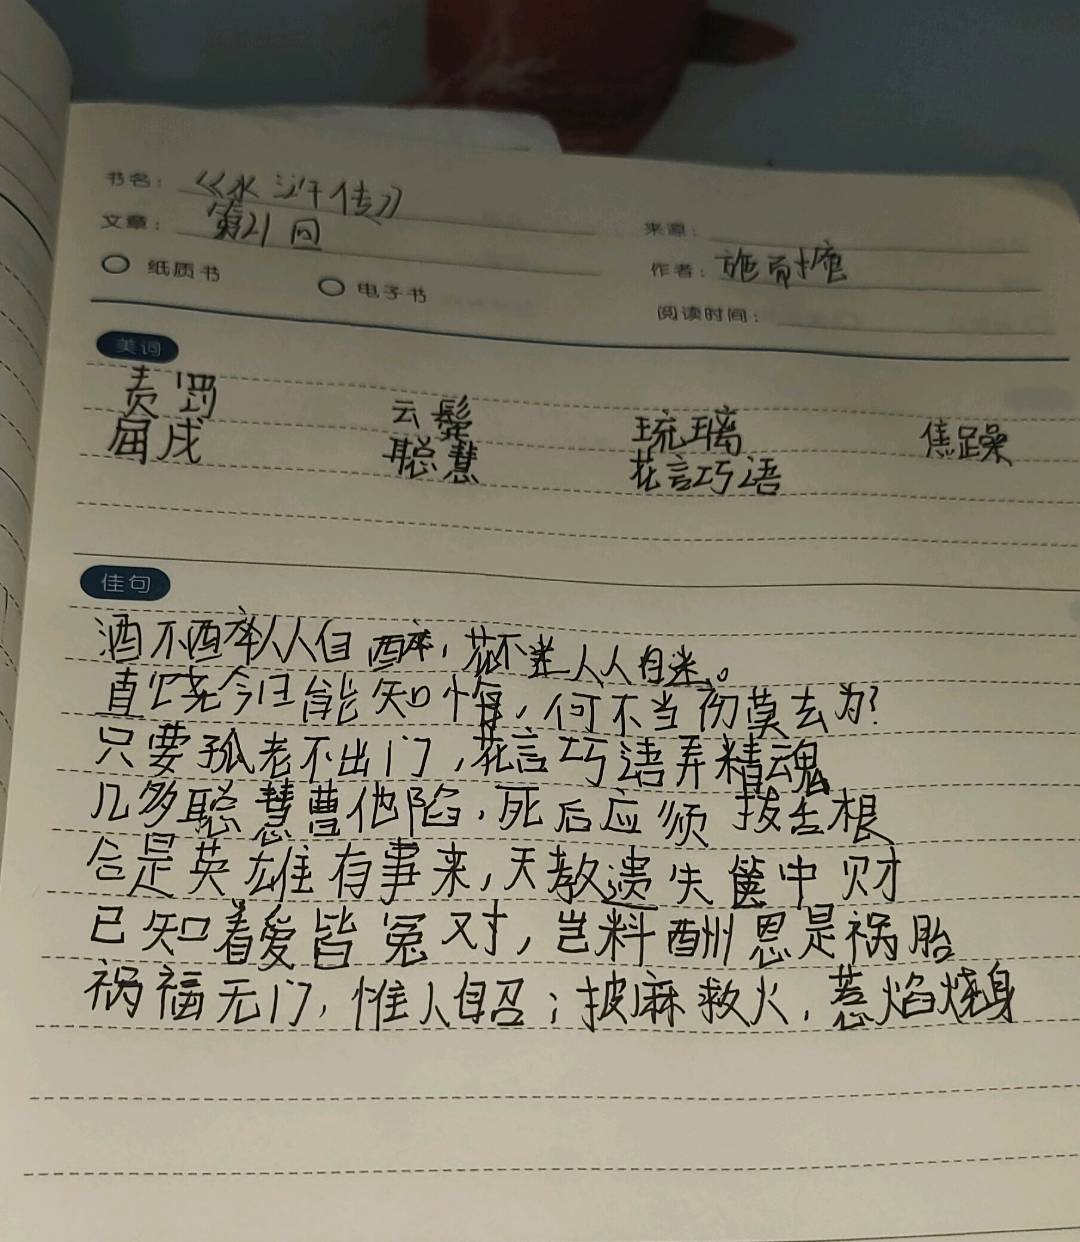 书名：《水浒传》
文章：第21回
来源：
作者：施耐庵
纸质书 电子书
阅读时间：
美词
责罚 云鬓 琉璃 焦躁
届戌 聪慧 花言巧语
佳句
酒不醉人人自醉，花不迷人人自迷。
直饶今日能知悔，何不当初莫去为？
只要孤老不出门，花言巧语弄精魂
几多聪慧曹他陷，死后应须拔舌根
合是英雄有事来，天教遗失箧中财
已知着爱皆冤对，岂料酬恩是祸胎
祸福无门，惟人自召；披麻救火，惹焰烧身